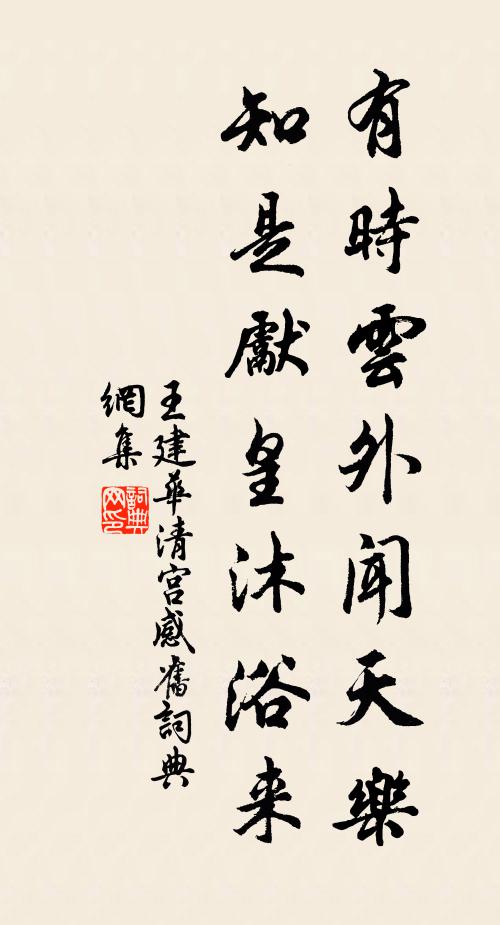 有時雲外聞天樂
知是獻皇沐浴来
王建華清宮感舊詞典
網集
詞典网印